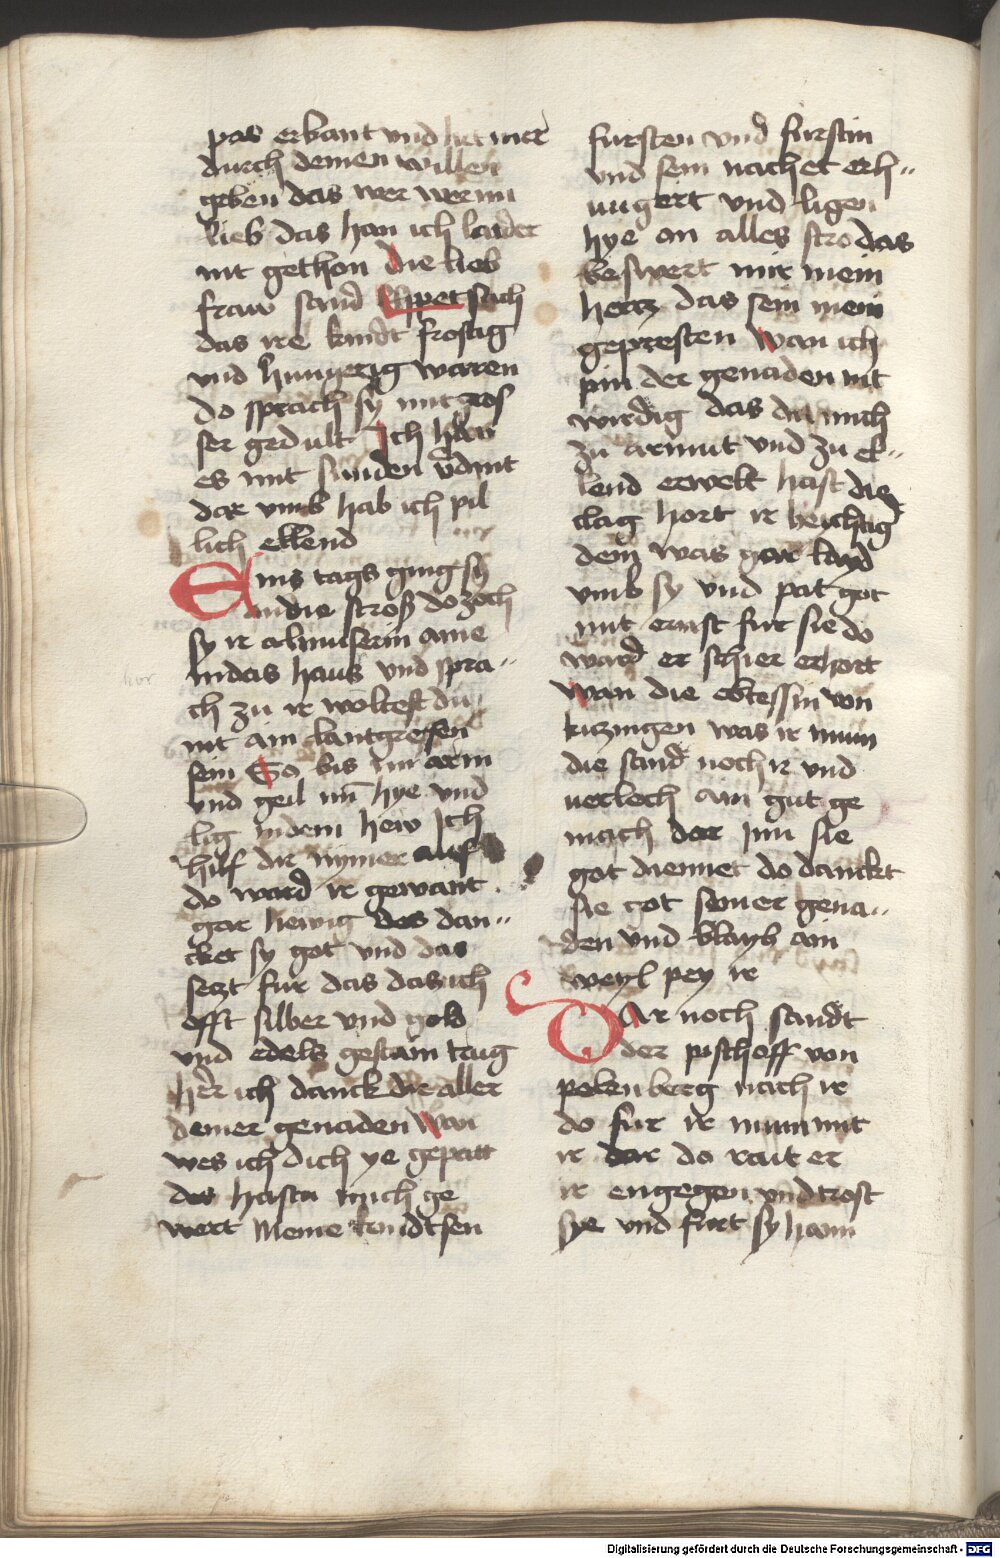 pas erkant vnd het mer
durch deinen willen
geben das wer wer mi
lieb das han ich laider
nit gethon die lieb
fraw sand Elspet sach
das ire kindt frostig
vnd hungerig waren
do sprach sy mit gros
ser gedult Ich hab
es mit sunden vdint
dar vmb hab ich pil
lich ellend
Eins tags ging sy
an die stroß do zoch
sy ir almuserin aine
in das haus vnd spra-
ch zu ir woltest du
nit ain lantgrefen
sein So bis nu arm
vnd geil nu hye vnd
lig in dem hew Ich
hilf dir nymer auf
do ward ir gewant
gar hewig des dan-
cket sy got vnd das
setzt fur das das ich
offt silber vnd gold
vnd edels gestain trug
her ich danck dir aller
deiner genaden wan
wes ich dich ye gepatt
des hastu mich ge
wert Meine kindt sen
fursten vnd furstin
vnd sein nachet erh-
ungert vnd ligen
hye on alles stro das
beswert mir mein
hertz das sein mein
gepresten wan ich
pin der genaden nit
wirdig das du mich
zu armut vnd zu el-
lend erwelt hast die
clag hort ir beichtig
dem was gar layd
vmb sy vnd pat got
mit ernst fur sie do
ward er schier erhort
wan die ebtessin von
kitzingen was ir mum
die sand noch ir vnd
verlech ain gut ge
mach dar inn sie
got dienet do danckt
sie got seiner gena-
den vnd blayb ain
weyl pey ir
Dar noch sandt
der pischoff von
pobenberg nach ir
do fur ir mum mit
ir dar do rait er
ir engegen vnd trost
sye vnd furt sy haim
Digitalisierung gefördert durch die Deutsche Forschungsgemeinschaft - DFG